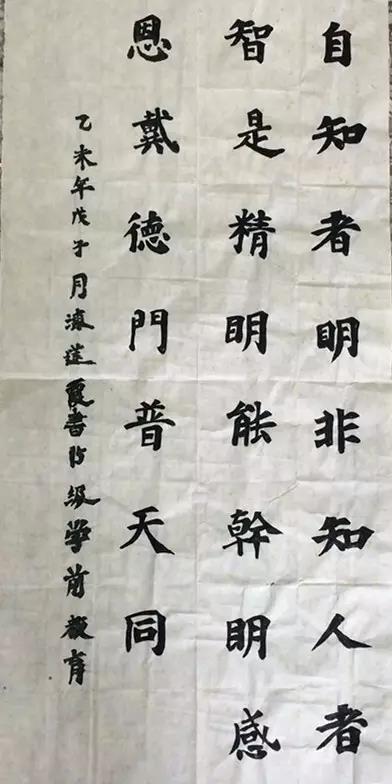 自知者明非知人者
智是精明能幹明感
恩戴德門普天同
乙未年戊子月濂蓮霞書15级学前教育